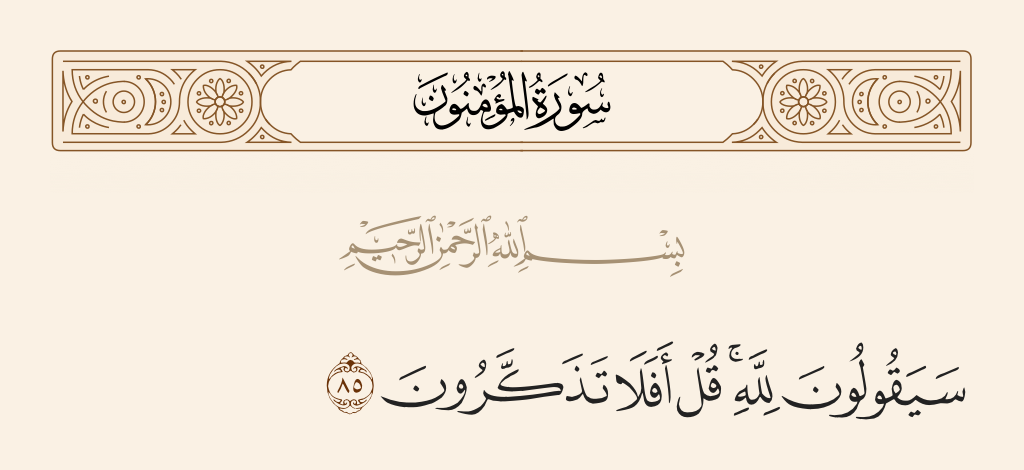 سُورَةُ المُؤْمِنُونَ
بِسْمِ ٱللَّهِ ٱلرَّحْمَٰنِ ٱلرَّحِيمِ
سَيَقُولُونَ لِلَّهِ ۚ قُلْ أَفَلَا تَذَكَّرُونَ ٨٥